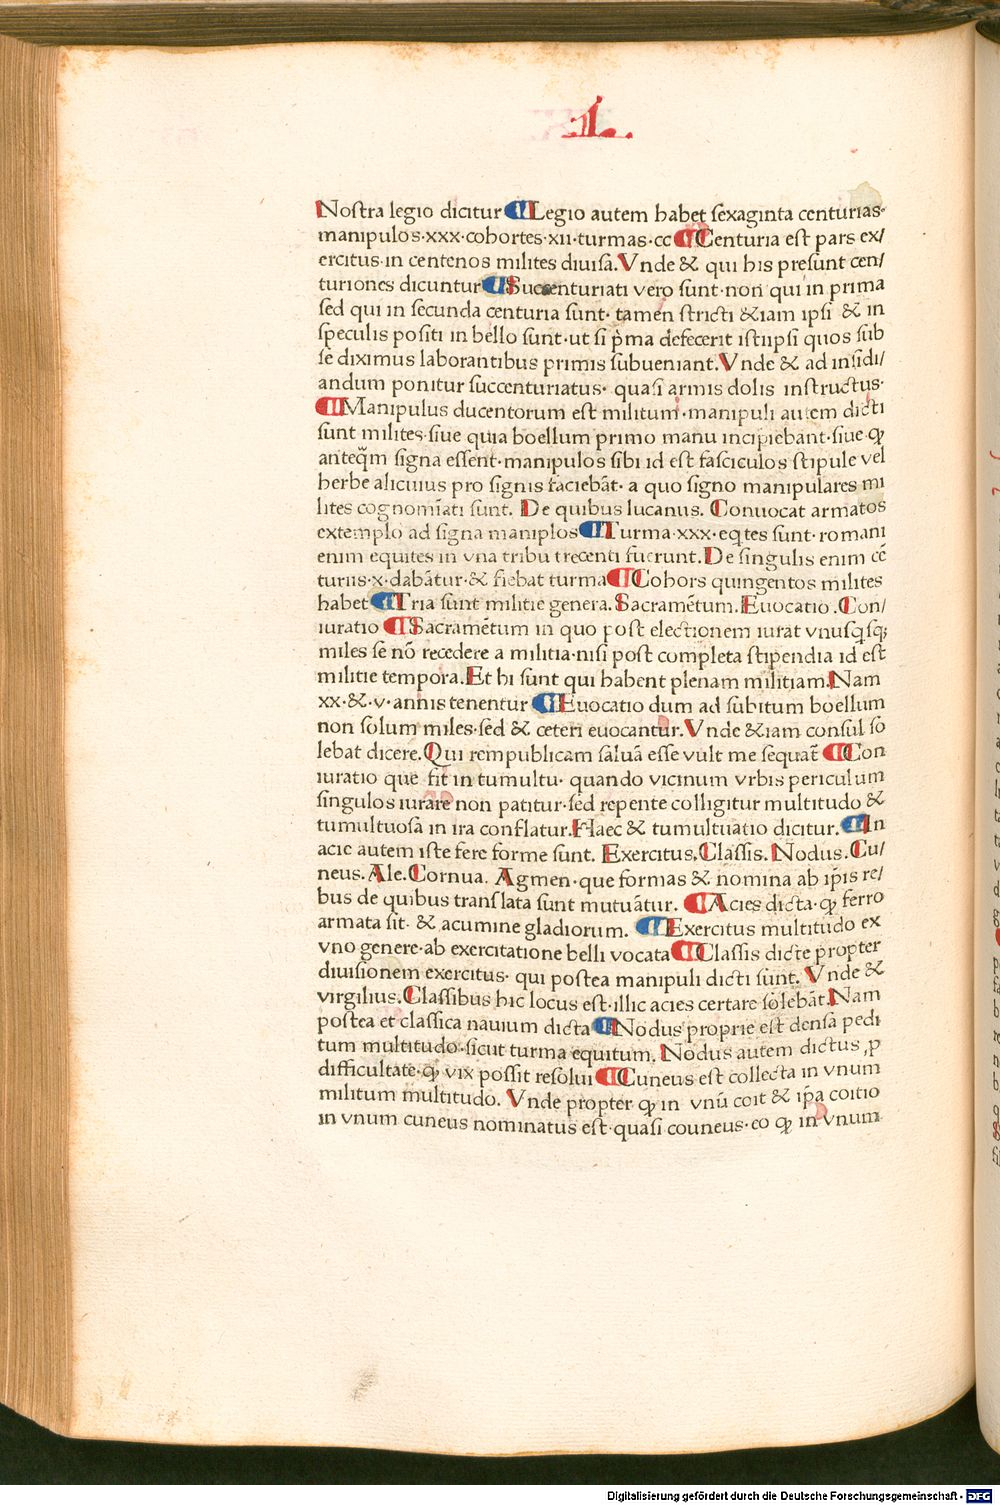 L.
Nostra legio dicitur ¶Legio autem habet sexaginta centurias·
manipulos·xxx·cohortes·xii·turmas·cc ¶Centuria est pars ex/
ercitus·in centenos milites diuisa.Vnde & qui his presunt cen/
turiones dicuntur ¶Succenturiati vero sunt·non qui in prima
sed qui in secunda centuria sunt· tamen stricti &iam ipsi & in
speculis positi in bello sunt·ut si p̄ma defecerit istiipsi quos sub
se diximus laborantibus primis subueniant.Vnde & ad insidi/
andum ponitur succenturiatus· quasi armis dolis instructus·
¶Manipulus ducentorum est militum·manipuli autem dicti
sunt milites·siue quia boellum primo manu incipiebant·siue ꝙ
anteq̄m signa essent·manipulos sibi id est fasciculos stipule vel
herbe alicuius pro signis faciebāt· a quo signo manipulares mi
lites cognomīati sunt. De quibus lucanus. Conuocat armatos
extemplo ad signa maniplos ¶Turma·xxx·eqtes sunt·romani
enim equites in vna tribu trecenti fuerunt.De singulis enim cē
turiis·x·dabātur·& fiebat turma ¶Cohors quingentos milites
habet ¶Tria sunt militie genera.Sacramētum.Euocatio.Con/
iuratio ¶Sacramētum in quo post electionem iurat vnusqsq;
miles se nō recedere a militia·nisi post completa stipendia id est
militie tempora.Et hi sunt qui habent plenam militiam.Nam
xx·&·v·annis tenentur ¶Euocatio dum ad subitum boellum
non solum miles·sed & ceteri euocantur.Vnde &iam consul so
lebat dicere.Qui rempublicam saluā esse vult me sequat̄ ¶Con
iuratio que fit in tumultu· quando vicinum vrbis periculum
singulos iurare non patitur·sed repente colligitur multitudo &
tumultuosa in ira conflatur.Haec & tumultuatio dicitur. ¶In
acie autem iste fere forme sunt. Exercitus.Classis.Nodus.Cu/
neus.Ale.Cornua. Agmen·que formas & nomina ab ip̄is re/
bus de quibus translata sunt mutuātur. ¶Acies dicta·ꝙ ferro
armata sit· & acumine gladiorum. ¶Exercitus multitudo ex
vno genere·ab exercitatione belli vocata ¶Classis dicte propter
diuisionem exercitus· qui postea manipuli dicti sunt. Vnde &
virgilius.Classibus hic locus est·illic acies certare solebāt.Nam
postea et classica nauium dicta ¶Nodus proprie est densa pedi
tum multitudo·sicut turma equitum. Nodus autem dictus ,p
difficultate·ꝙ vix possit resolui ¶Cuneus est collecta in vnum
militum multitudo. Vnde propter ꝙ in vnū coit & ip̄a coitio
in vnum cuneus nominatus est·quasi couneus·eo ꝙ in vnum
Digitalisierung gefördert durch die Deutsche Forschungsgemeinschaft - DFG